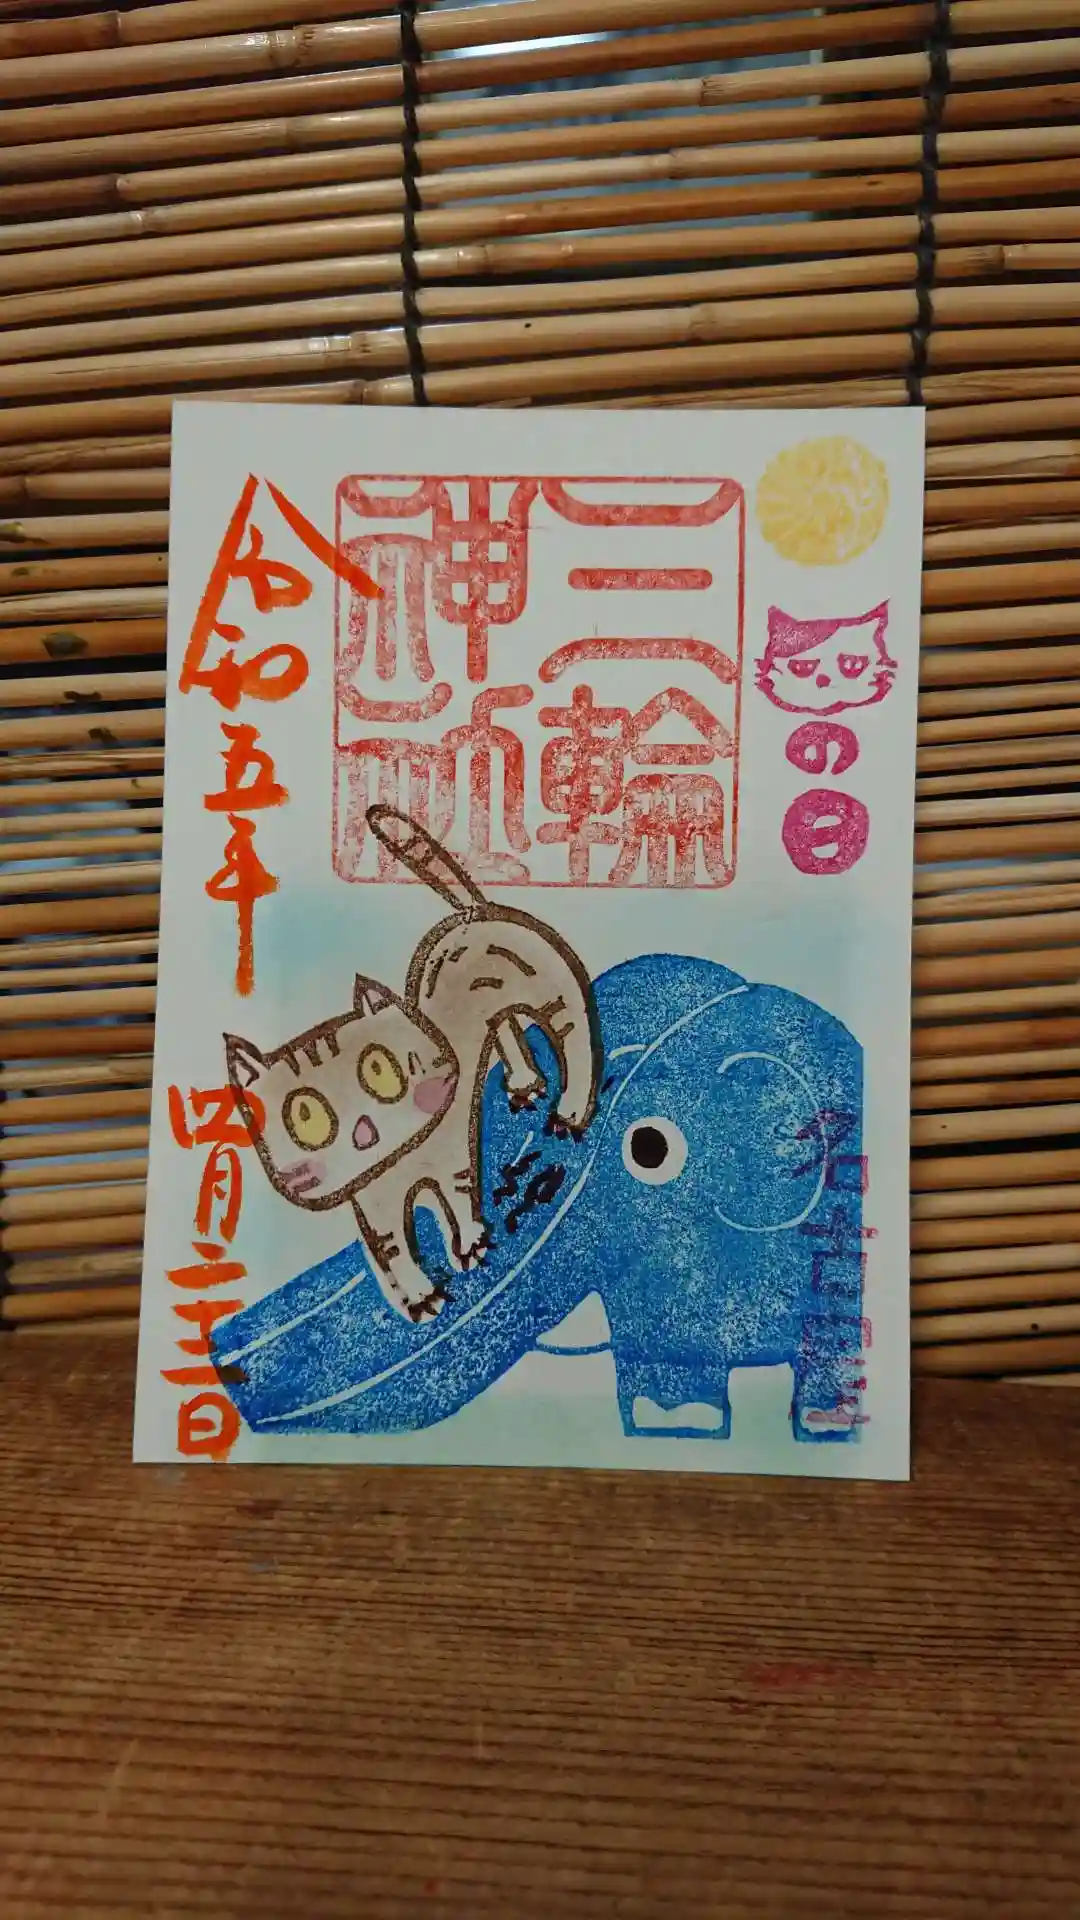 の日
三輪
神社
令和五年
四月二十二日